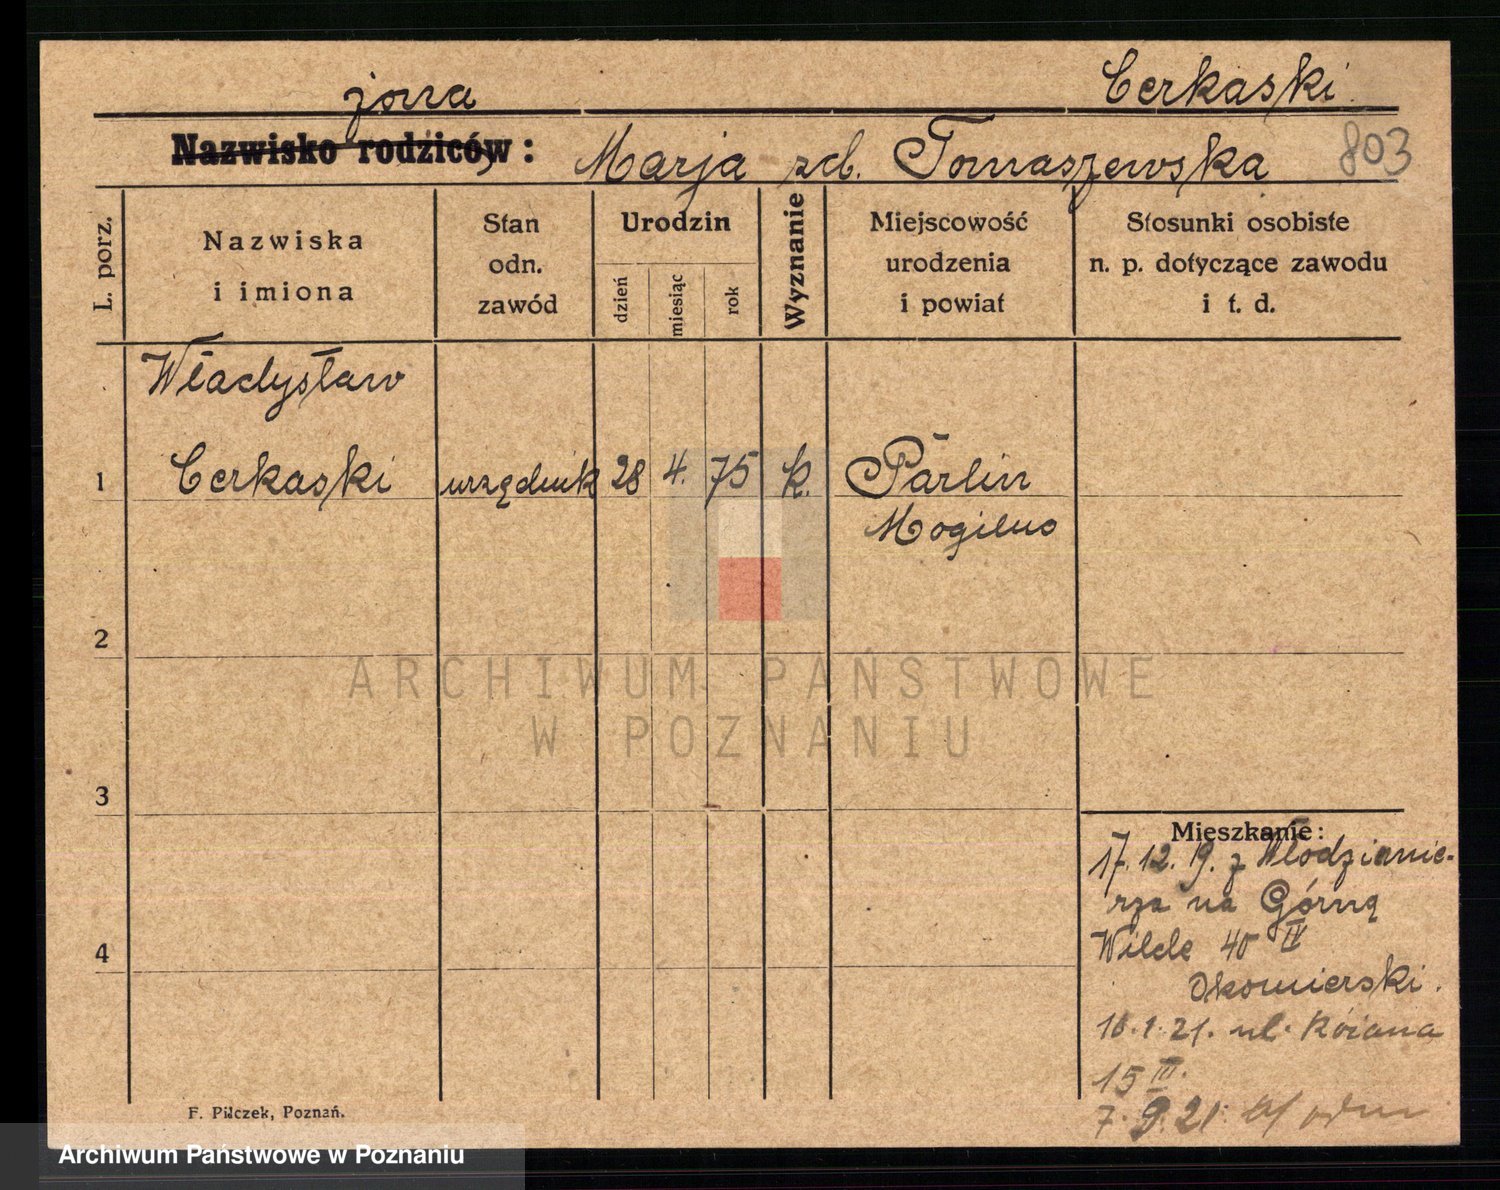 Cerkaski.
żona
Nazwisko rodziców: Marja zd. Tomaszewska 803
L. porz.
Nazwiska
i imiona
Stan
odn.
zawód
Urodzin
dzień
miesiąc
rok
Wyznanie
Miejscowość
urodzenia
i powiat
Stosunki osobiste
n. p. dotyczące zawodu
i t. d.
Władysław
1 Cerkaski urzędnik 28 4. 75 k. Parlin
Mogilno
2
ARCHIWUM PAŃSTWOWE
W POZNANIU
3
Mieszkanie:
17.12.19. z Włodzimie-
rza na Górną
4 Wildę 40 IV
Okomierski.
18.1.21. ul.
15 IV.
7.9.21.
F. Pilczek, Poznań.
Archiwum Państwowe w Poznaniu